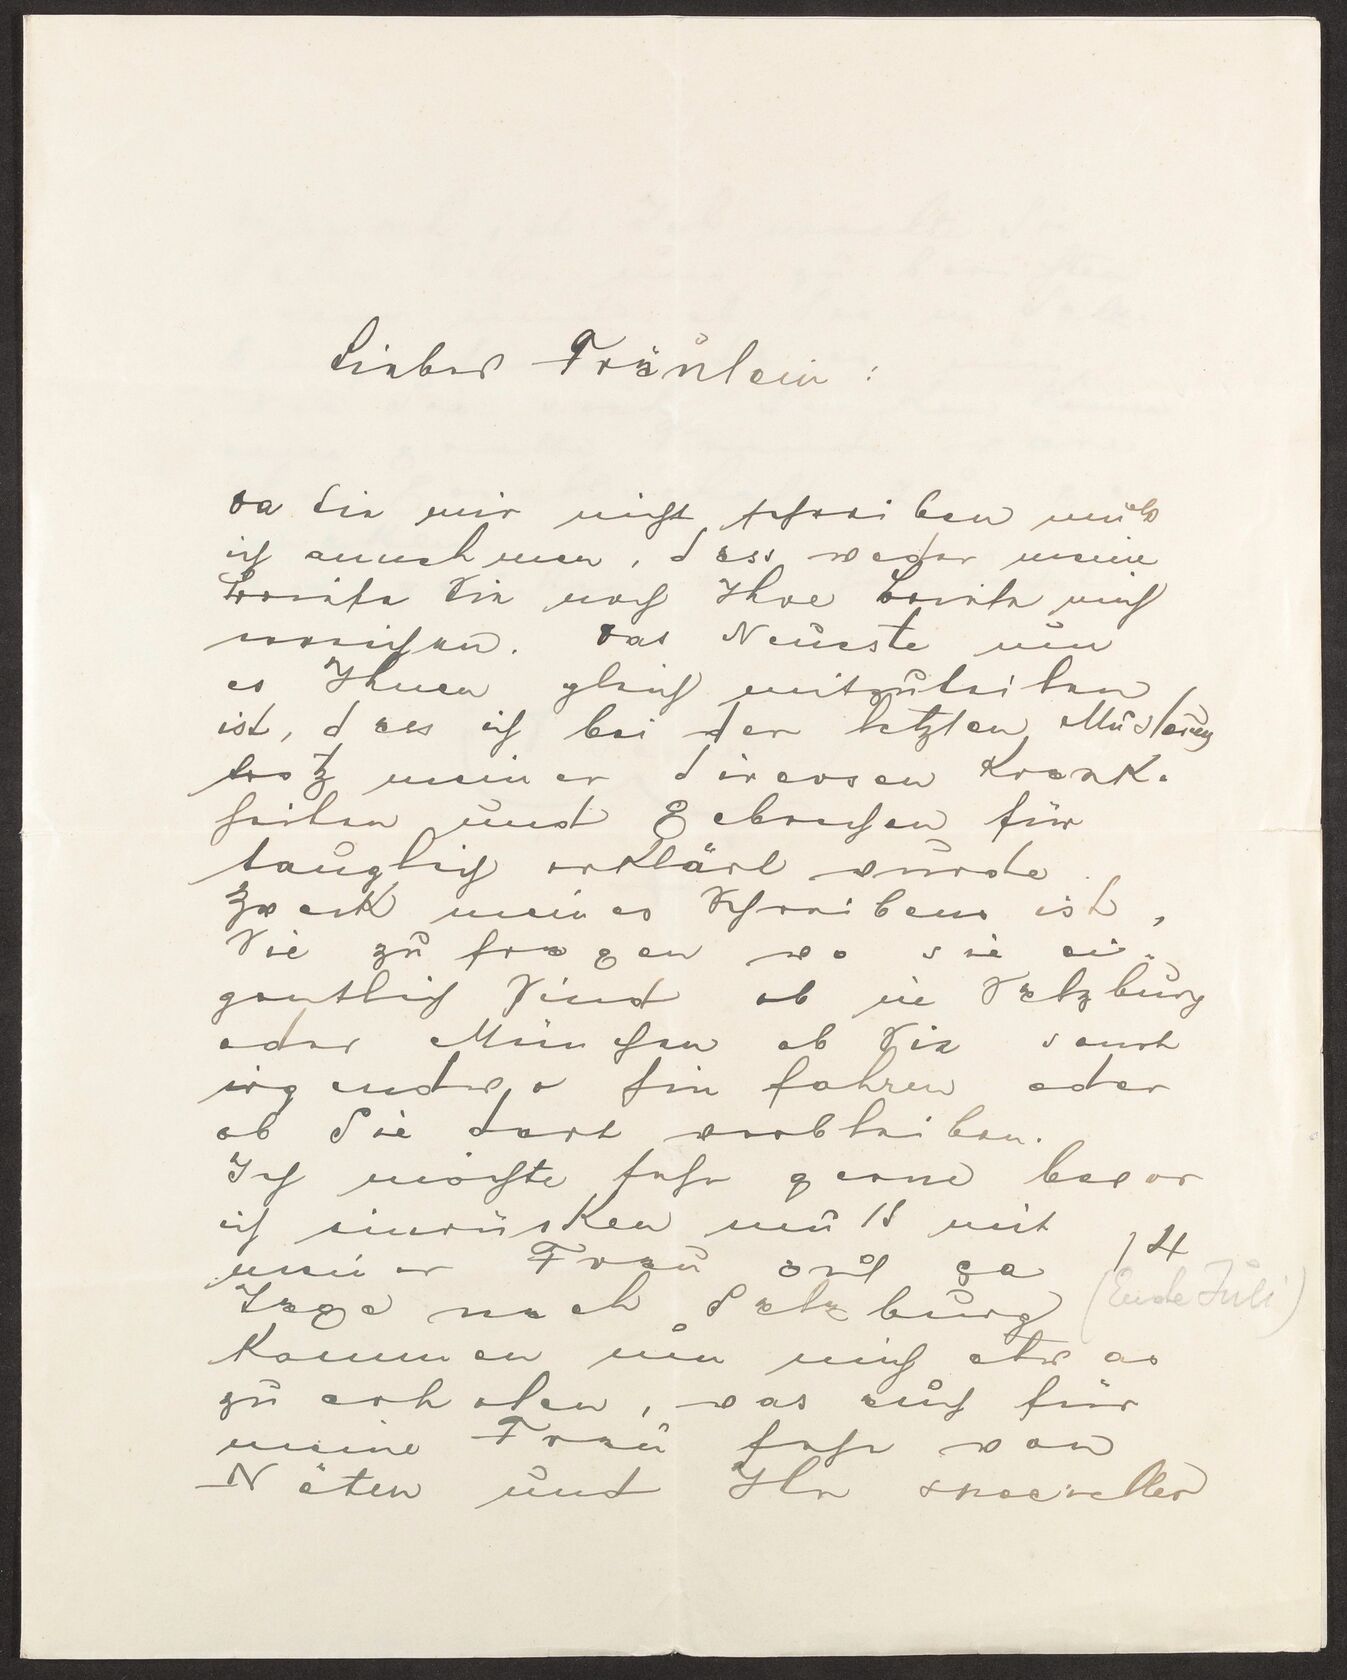 Liebes Fräulein :
Da Sie mir nicht schreiben muß
ich annehmen, dass weder meine
Briefe Sie noch Ihre Briefe mich
erreichen. Das Neueste um
es Ihnen gleich mitzuteilen
ist, dass ich bei der letzten Musterung
trotz meiner diversen Krank-
heiten und Gebrechen für
tauglich erklärt wurde.
Zweck meines Schreibens ist,
Sie zu fragen wo sie ei-
gentlich Sind ob in Salzburg
oder München ob Sie sonst
irgendwo hin fahren oder
ob Sie dort verbleiben.
Ich möchte sehr gerne bevor
ich einrücken muß mit
meiner Frau auf ca 14
Tage nach Salzburg (Ende Juli)
Kommen um mich etwas
zu erholen, was auch für
meine Frau sehr von
Nöten und Ihr specieller